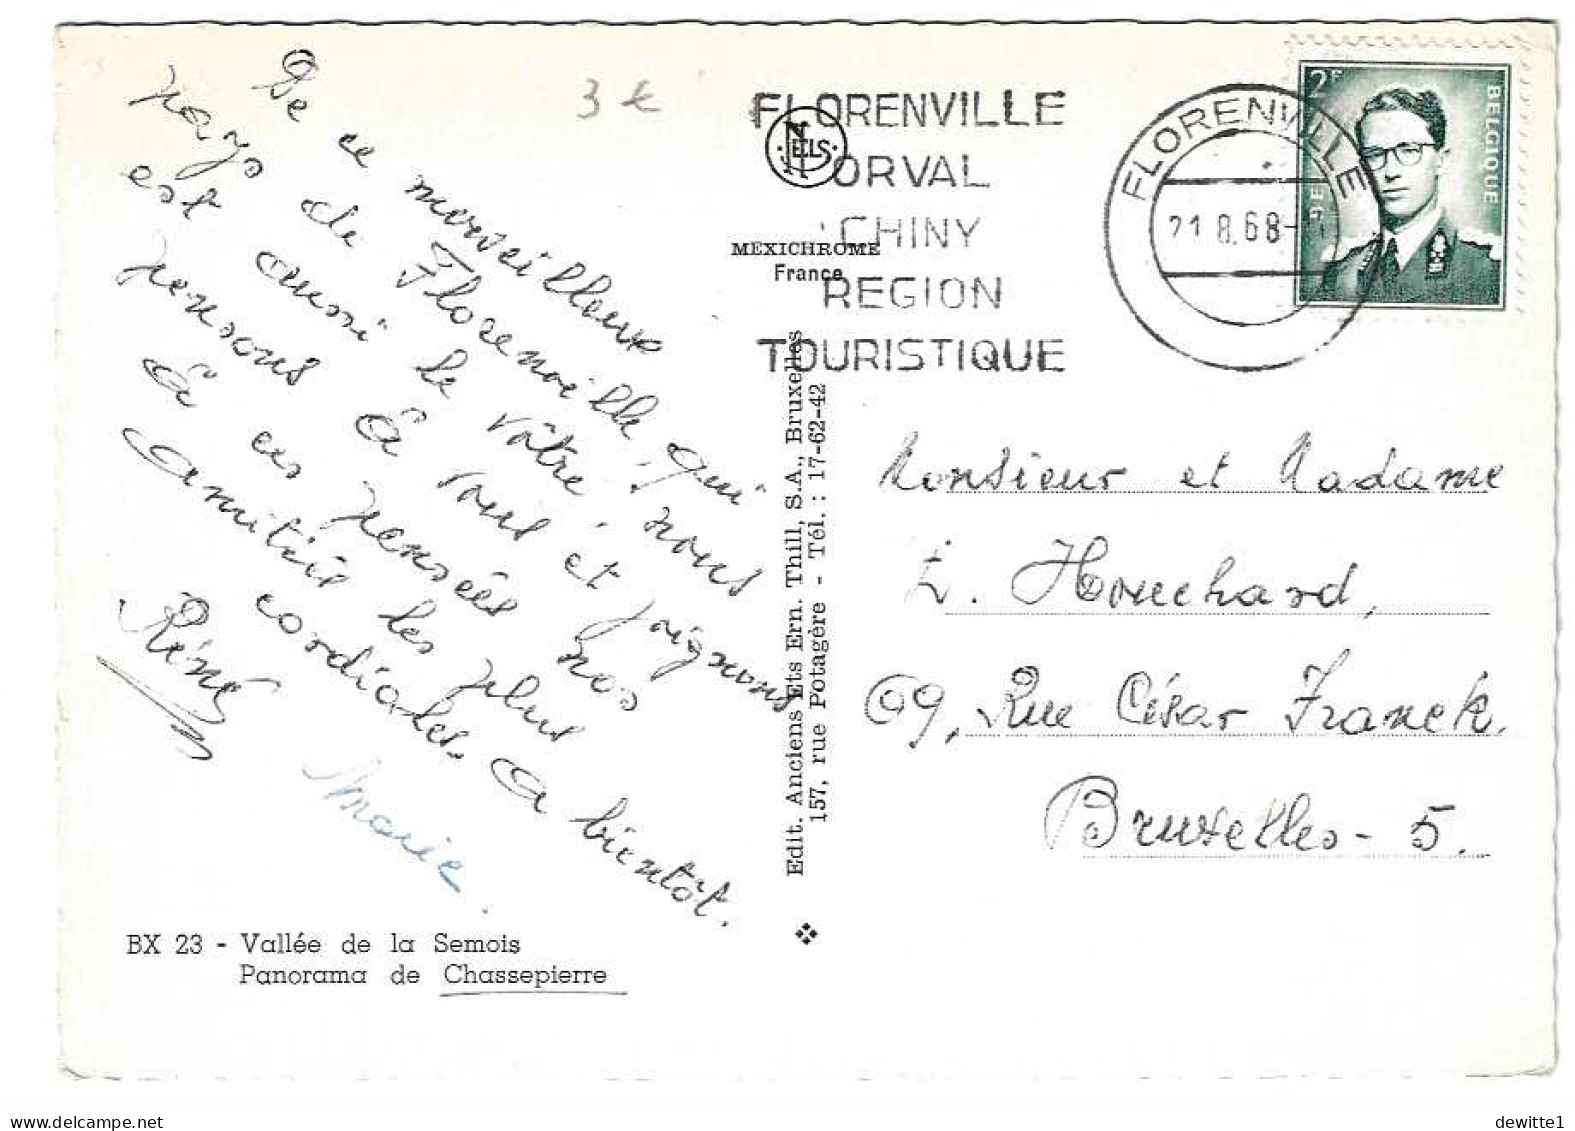 De ce merveilleux
pays de Florenville qui
est aussi le vôtre, nous
pensons à vous et joignons
à ces pensées nos
amitiés les plus
cordiales. A bientôt.
René
Marie.
BX 23 - Vallée de la Semois
Panorama de Chassepierre
3 €
NELS
MEXICHROME
France
Edit. Anciens Ets Ern. Thill, S.A., Bruxelles
157, rue Potagère - Tél. : 17-62-42
FLORENVILLE
ORVAL
CHINY
REGION
TOURISTIQUE
FLORENVILLE
21.8.68
2F
BELGIQUE
Monsieur et Madame
L. Houchard,
69, Rue César Franck,
Bruxelles - 5.
dewitte1